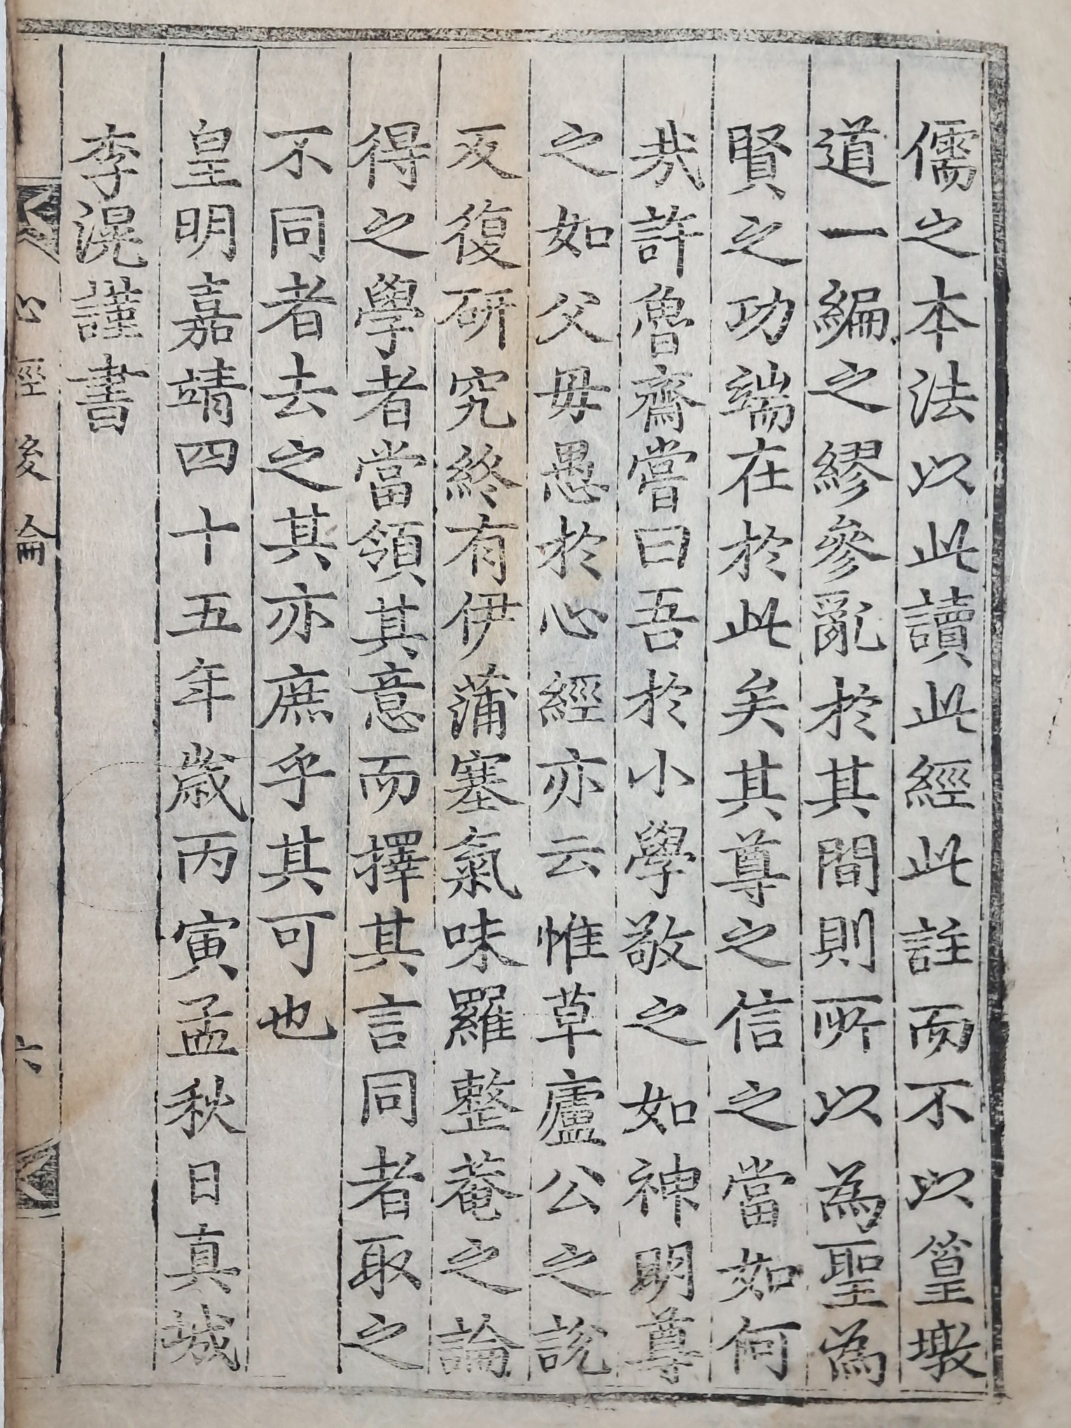 儒之本法以此讀此經此註而不以篁墩
道一編之繆參亂於其間則所以為聖為
賢之功端在於此矣其尊之信之當如何
㢤許魯齋嘗曰吾於小學敬之如神明尊
之如父母愚於心經亦云惟草廬公之說
反復研究終有伊蒲塞氣味羅整菴之論
得之學者當領其意而擇其言同者取之
不同者去之其亦庶乎其可也
皇明嘉靖四十五年歲丙寅孟秋日真城
李滉謹書
心經後論
六